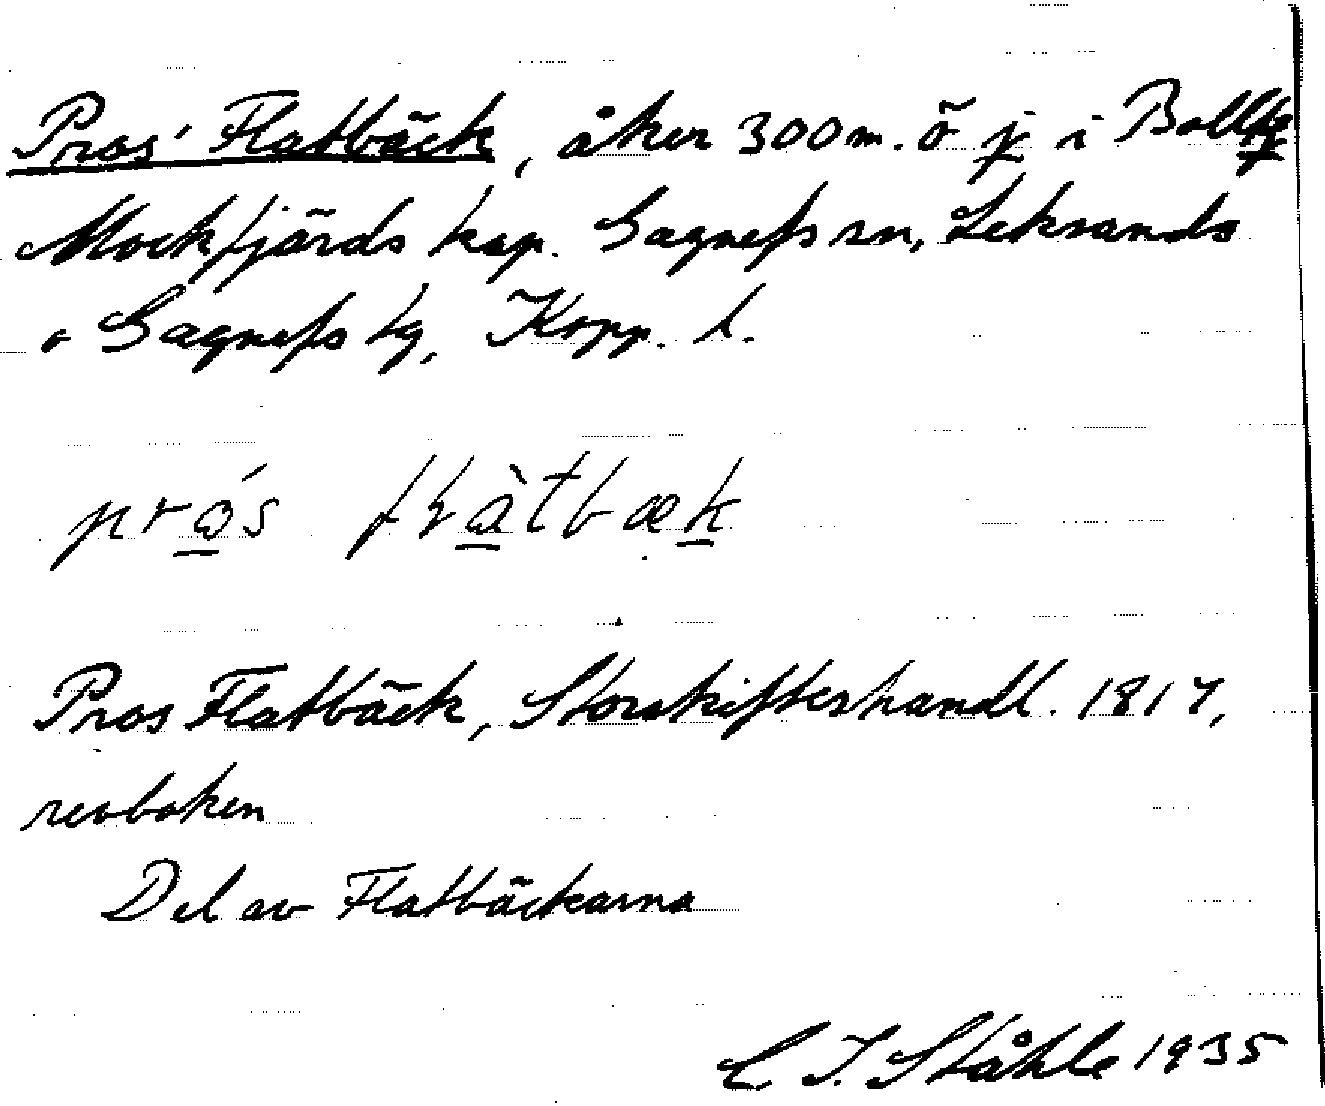 Pros' Flatbäck, åker 300 m. ö j i
Mockfjärds kap. Gagnefs sn, Leksands
o Gagnefs tg, Kopp. l.
Pros Flatbäck, Storskifteshandl. 1817,
revboken
Del av Flatbäckarna
C I. Ståhle 1935